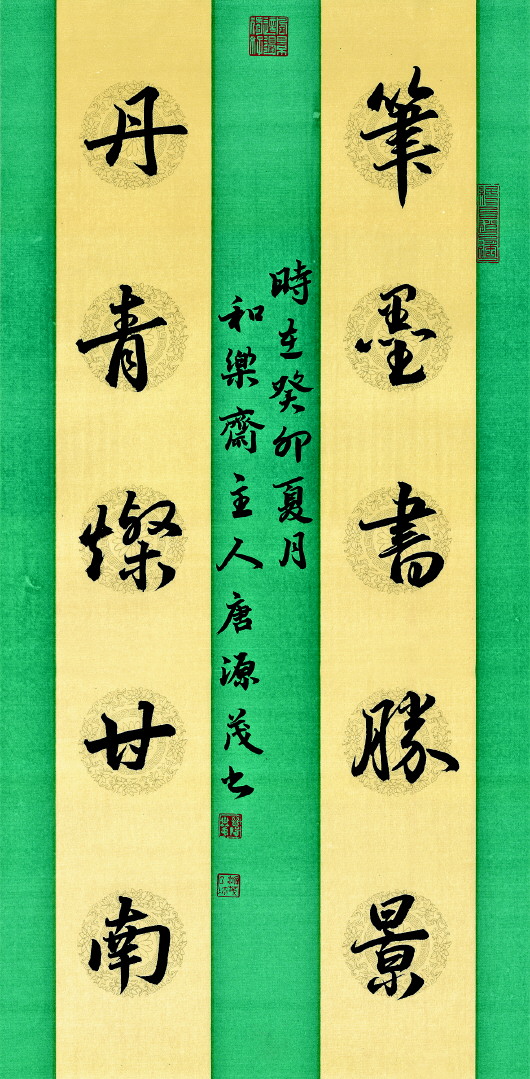 筆墨書勝景
丹青燦甘南
時在癸卯夏月
和樂齋主人唐源茂書